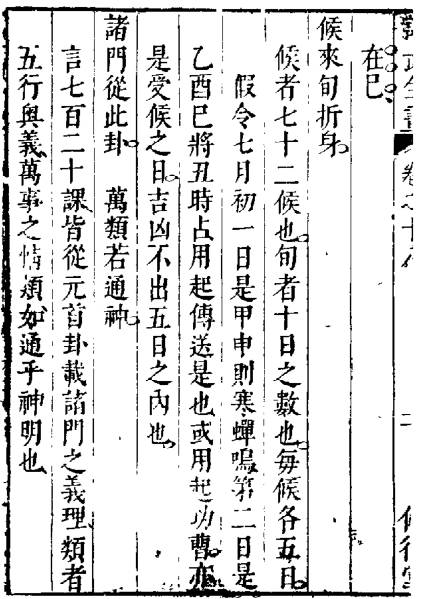 卷之十八
在巳
候來旬折身
候者七十二候也旬者十日之數也每候各五日
假令七月初一日是甲申則寒蟬鳴第二日是
乙酉巳將丑時占用起傳送是也或用起功曹亦
是受候之日吉凶不出五日之內也
諸門從此卦　萬類若通神
言七百二十課皆從元首卦載諸門之義理類者
五行與義萬事之情類如通乎神明也